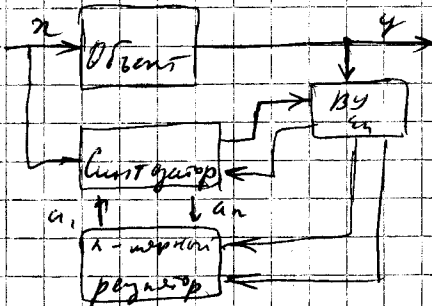 x
y
Объект
ВУ
Синтезатор
a₁
aₙ
n-мерный
регулятор